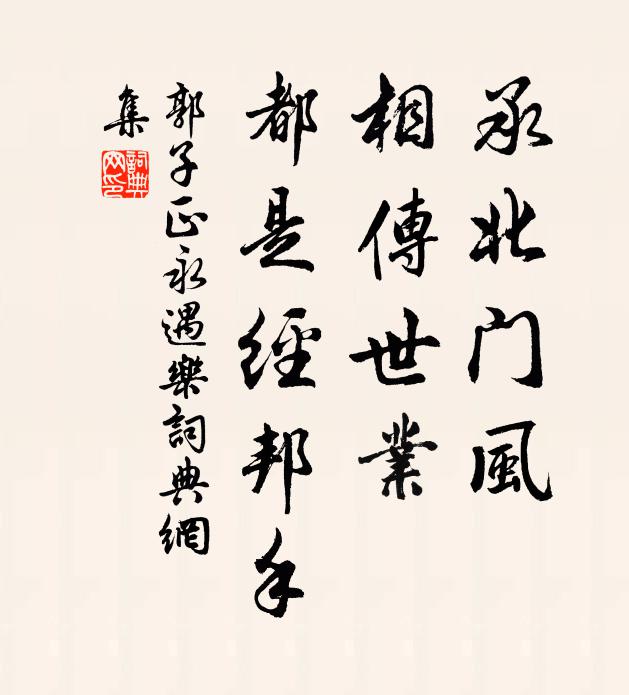 承北门風
相傳世業
都是經邦手
郭子正永遇樂詞典網
集
詞典
网印